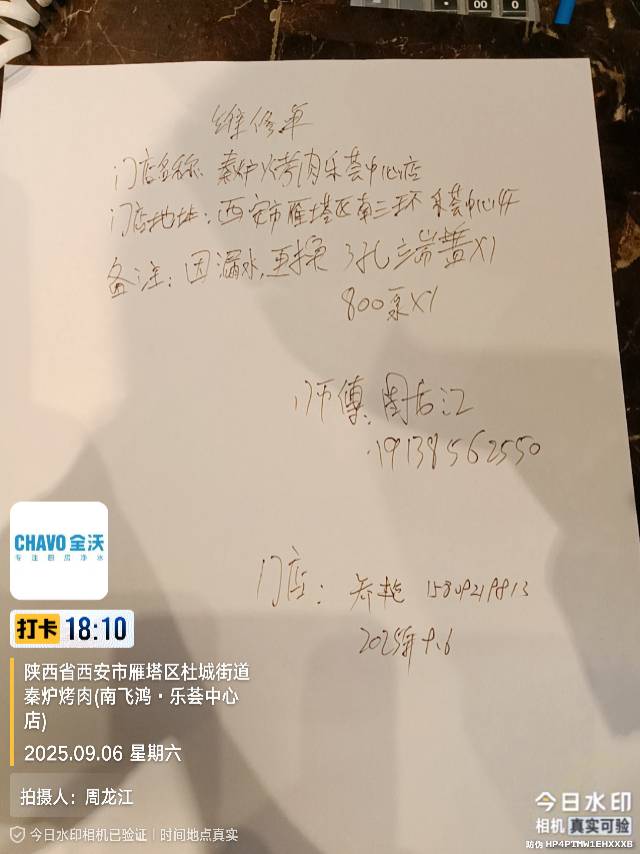 00
0
维修单
门店名称: 秦炉烤肉乐荟中心店
门店地址: 西安市雁塔区南三环 乐荟中心
备注: 因漏水,更换 3孔端盖X1
800泵X1
师傅: 周龙江
19138562550
门店: 乔艳 15809219813
2025年9.6
CHAVO 全沃
专注厨房净水
打卡 18:10
陕西省西安市雁塔区杜城街道
秦炉烤肉(南飞鸿·乐荟中心
店)
2025.09.06 星期六
拍摄人: 周龙江
今日水印相机已验证 | 时间地点真实
今日水印
相机 真实可验
防伪 HP4PTMW1EHXXXB